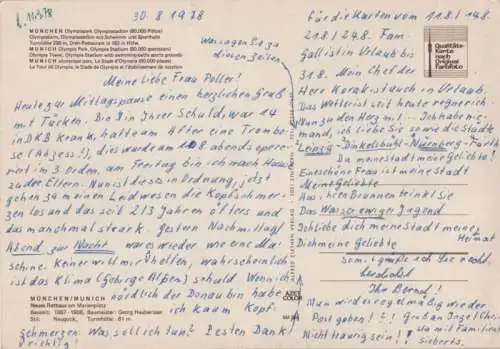 E. 11.9.78
30. 8. 1978
MÜNCHEN Olympiapark Olympiastadion (80.000 Plätze)
Olympiaturm, Olympiastadion mit Schwimm- und Sporthalle
Turmhöhe 290 m, Dreh-Restaurant in 182 m Höhe.
MUNICH Olympic Park, Olympia Stadion (80.000 spectators)
Olympia Tower, Olympia Stadium with swimming-sports sports grounds
MUNICH olympique parc, Le Stade d'Olympia (80.000 places)
La Tour del Olympia, le Stade de Olympia et l'établissement de natation
Was sagen Sie zu
diesen Zeilen
Meine liebe Frau Poller!
Heute zur Mittagspause einen herzlichen Gruß
mit Tücken. Bin in Ihrer Schuld, war 14
in DKB Krankh, hatte am After eine Trombo-
se (Abzess!), dies wurde am 1.8 abends opere-
rt in 3. Orden. am Freitag bin ich nach Hause
zu den Eltern. Nun ist dieses in Ordnung, jetzt
gehen zu meinen Leidwesen die Kopfschmer-
zen los und das seit 2/3 Jahren öfters und
das manchmal stark. Gestern Nachmittag/
Abend zur Nacht war es wieder wie eine Ma-
schine. Keiner will mir helfen, wahrscheinlich
ist das Klima (Gebirge Alpen) schuld Wenn ich
nördlich der Donau bin habe
ich kaum Kopf-
schmerzen. Was soll ich tun? Besten Dank!
MÜNCHEN/MUNICH
Neues Rathaus am Marienplatz
Bauzeit: 1867-1908, Baumeister: Georg Hauberisser
Stil: Neugotik, Turmhöhe: 81 m.
AZET COLOR
Qualitäts-
Karte
nach
Original
Farbfoto
für die Karten vom 11.8/ 14.8
21.8/ 24.8 Fam.
Gallistl in Urlaub zum
31.8. Mein Chef der
Herr Karak ist auch in Urlaub.
Das Wetter ist seit heute regnerisch.
Nun zu den Herz mit... Ich habe nie-
mand, ich liebe Sie so wie die Stadt
Leipzig - Dinkelsbühl - Nürnberg - Fürth
Du meine stadt meine Geliebte!
Eine schöne Frau ist meine Stadt
Meine Geliebte
Aus ihren Brunnen trinkt sie
Das Wasser ewiger Jugend
Ich liebe dich meine stadt meine
Dich meine Geliebte Heimat
Somit grüße ich Sie recht
herzlichst
Ihr Bernd!
Nun wird es regelmäßig wieder
Post geben! Gruß an Ingel (Chri-
Nicht traurig sein! sta mit Familien)
Sieberts.